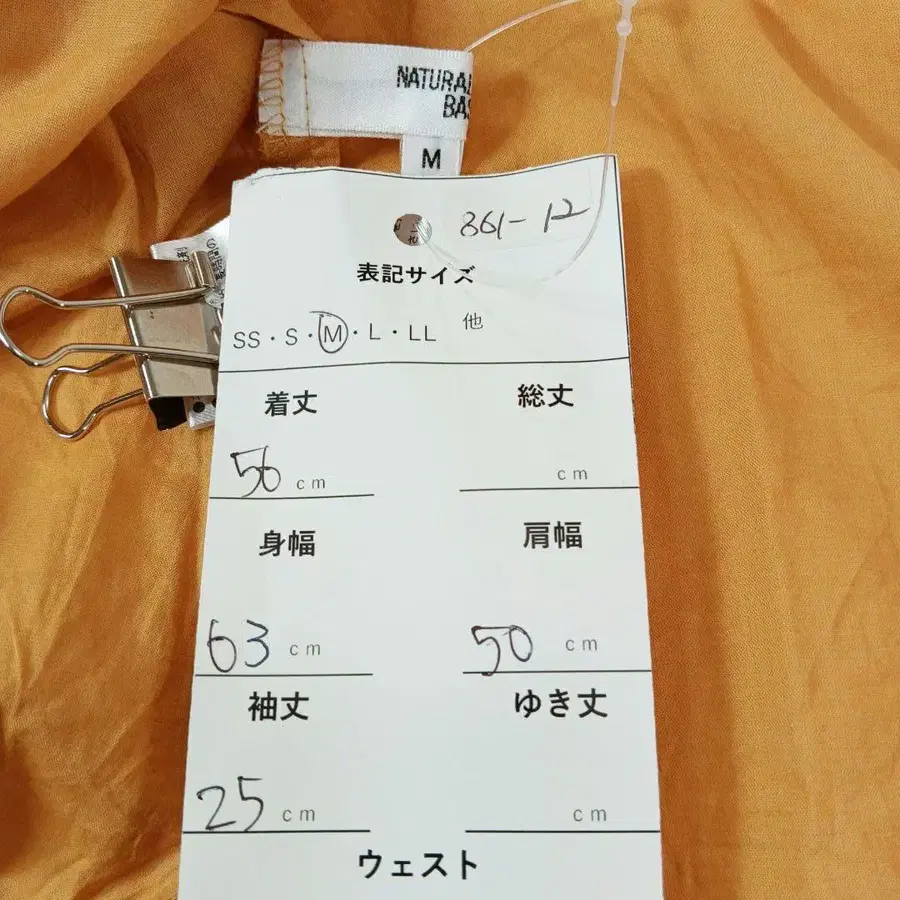 NATURAL
BAS
M
861-12
表記サイズ
SS・S・M・L・LL 他
着丈 総丈
56 cm cm
身幅 肩幅
63 cm 50 cm
袖丈 ゆき丈
25 cm cm
ウェスト